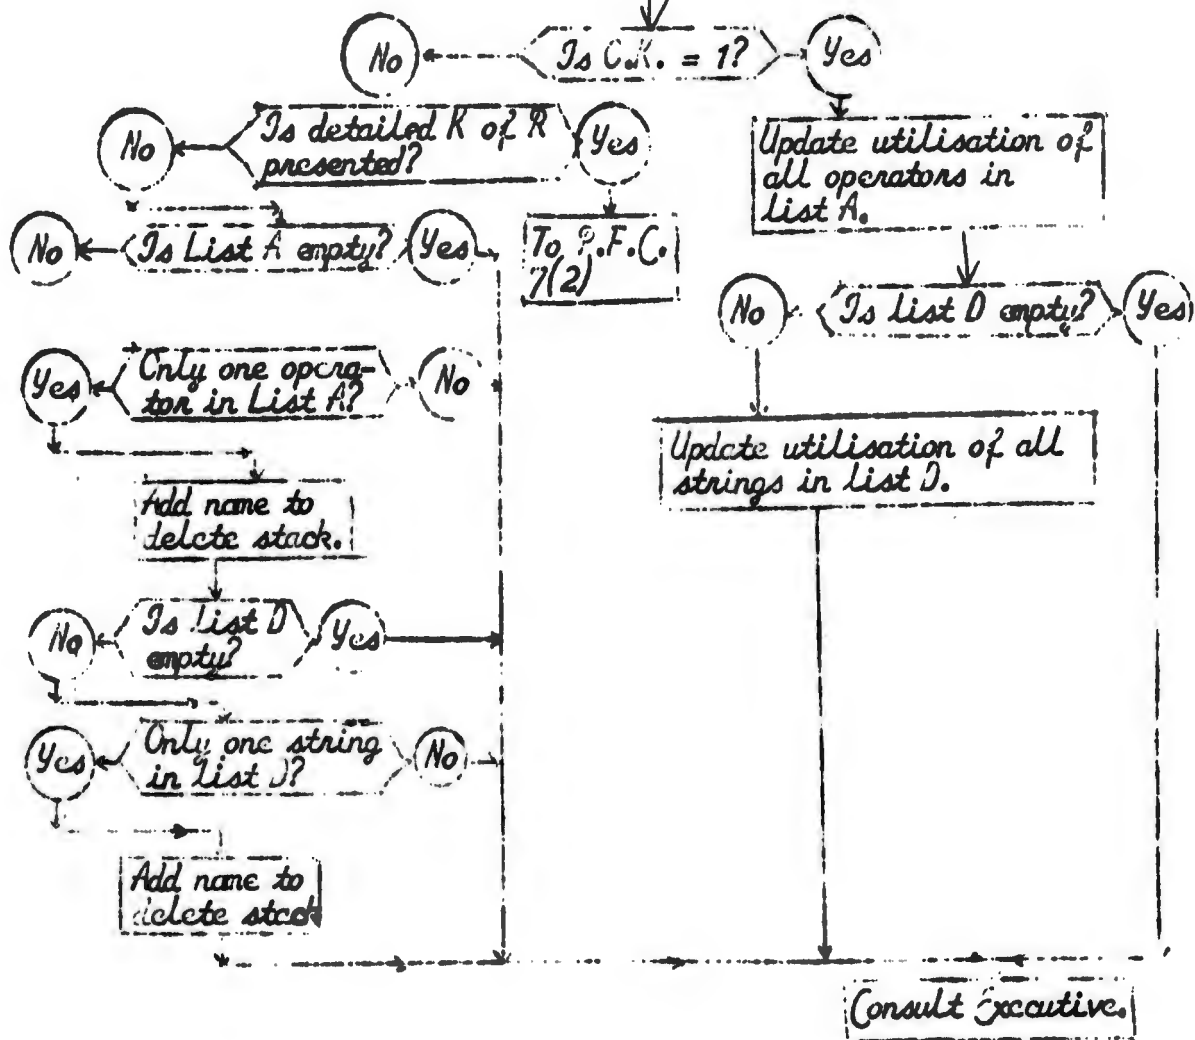 No
Is C.K. = 1?
Yes
No
Is detailed K of R
presented?
Yes
Update utilisation of
all operators in
List A.
No
Is List A empty?
Yes
To P.F.C.
7(2)
No
Is list D empty?
Yes
Yes
Only one opera-
tor in List A?
No
Update utilisation of all
strings in list D.
Add name to
delete stack.
No
Is list D
empty?
Yes
Yes
Only one string
in list D?
No
Add name to
delete stack
Consult Executive.